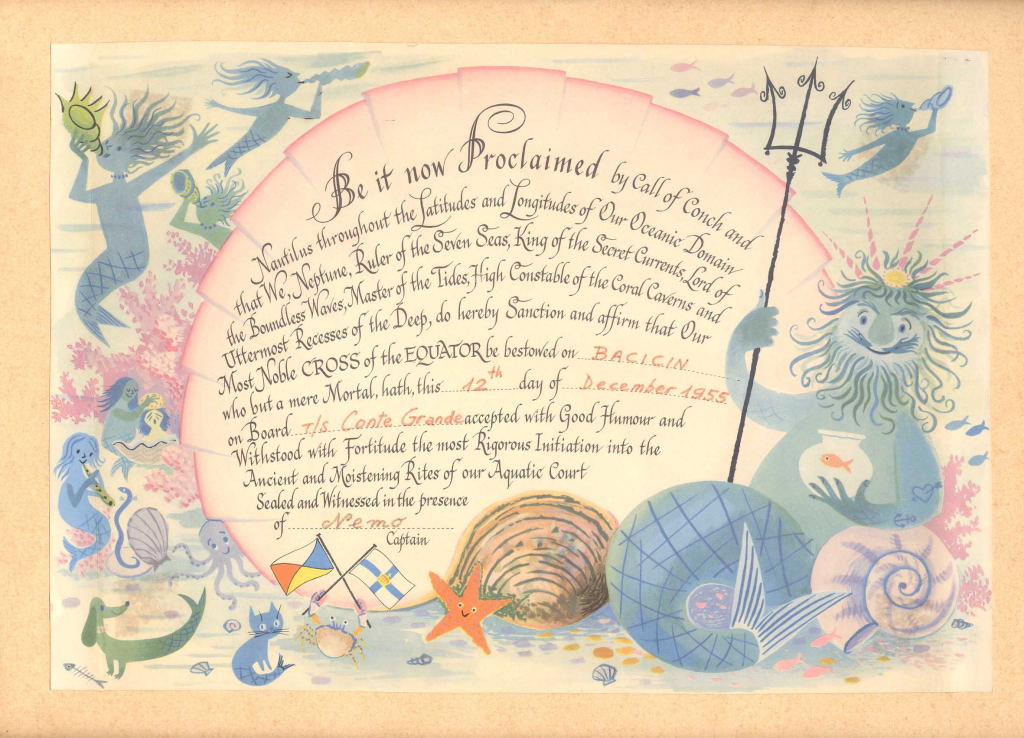 Be it now Proclaimed by Call of Conch and
Nautilus throughout the Latitudes and Longitudes of Our Oceanic Domain
that We, Neptune, Ruler of the Seven Seas, King of the Secret Currents, Lord of
the Boundless Waves, Master of the Tides, High Constable of the Coral Caverns and
Uttermost Recesses of the Deep, do hereby Sanction and affirm that Our
Most Noble CROSS of the EQUATOR be bestowed on BACICIN
who but a mere Mortal, hath, this 12th day of December 1955
on Board T/s Conte Grande accepted with Good Humour and
Withstood with Fortitude the most Rigorous Initiation into the
Ancient and Moistening Rites of our Aquatic Court
Sealed and Witnessed in the presence
of Nemo
Captain